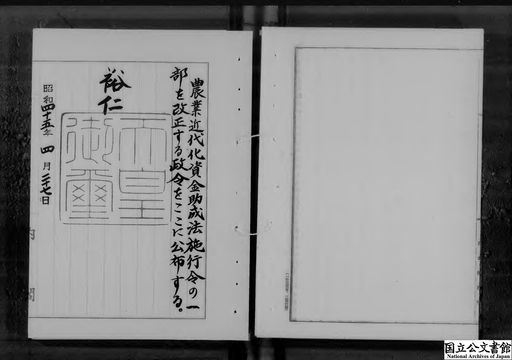 農業近代化資金助成法施行令の一
部を改正する政令をここに公布する。
裕仁
天皇
御璽
昭和四十五年四月二十七日
内閣
国立公文書館
National Archives of Japan